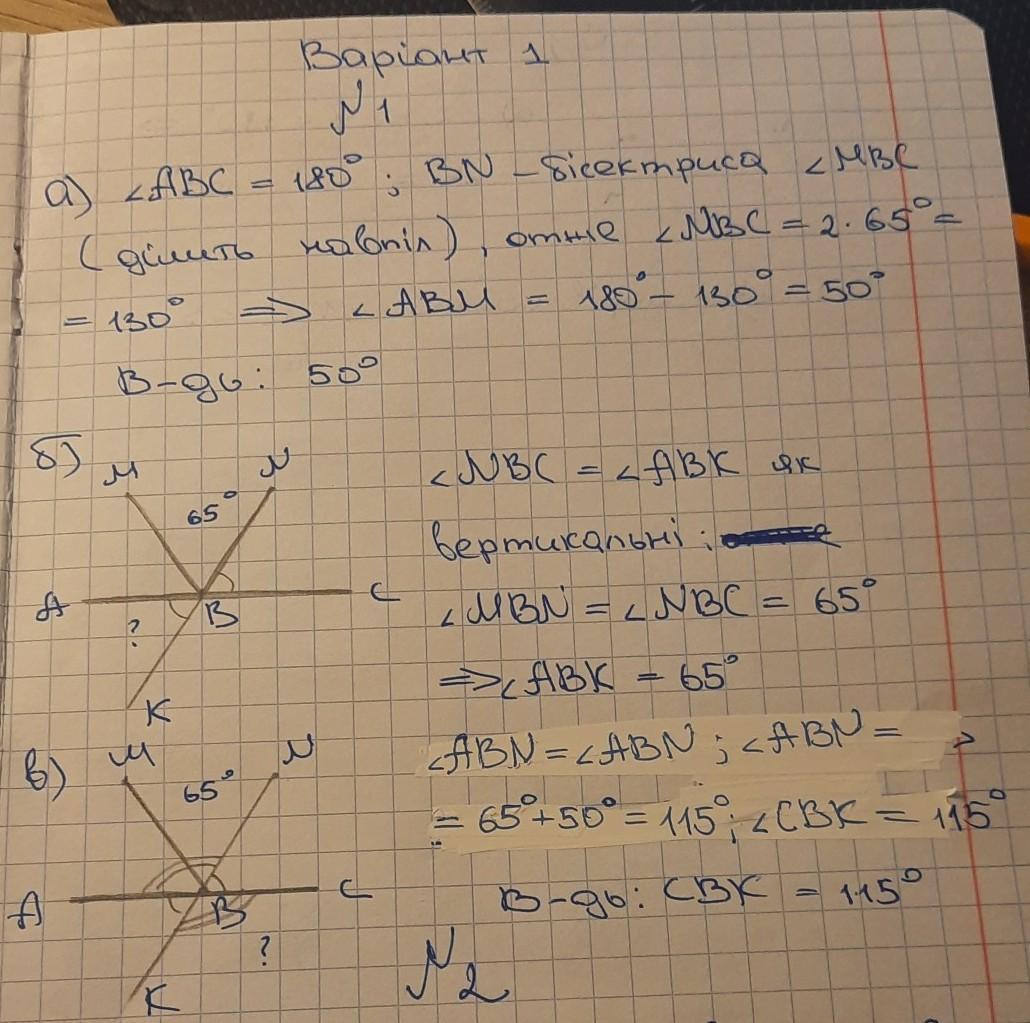 Варіант 1
№1
а) ∠ABC = 180°; BN – бісектриса ∠MBC
(ділить навпіл), отже ∠MBC = 2·65° =
= 130° ⟹ ∠ABM = 180° – 130° = 50°
В-дь: 50°
б) M N 65° A B C ? K
∠NBC = ∠ABK як
вертикальні;
∠MBN = ∠NBC = 65°
⟹ ∠ABK = 65°
в) M N 65° A B C ? K
∠ABN = ∠ABN; ∠ABN =
= 65° + 50° = 115°; ∠CBK = 115°
В-дь: CBK = 115°
№2